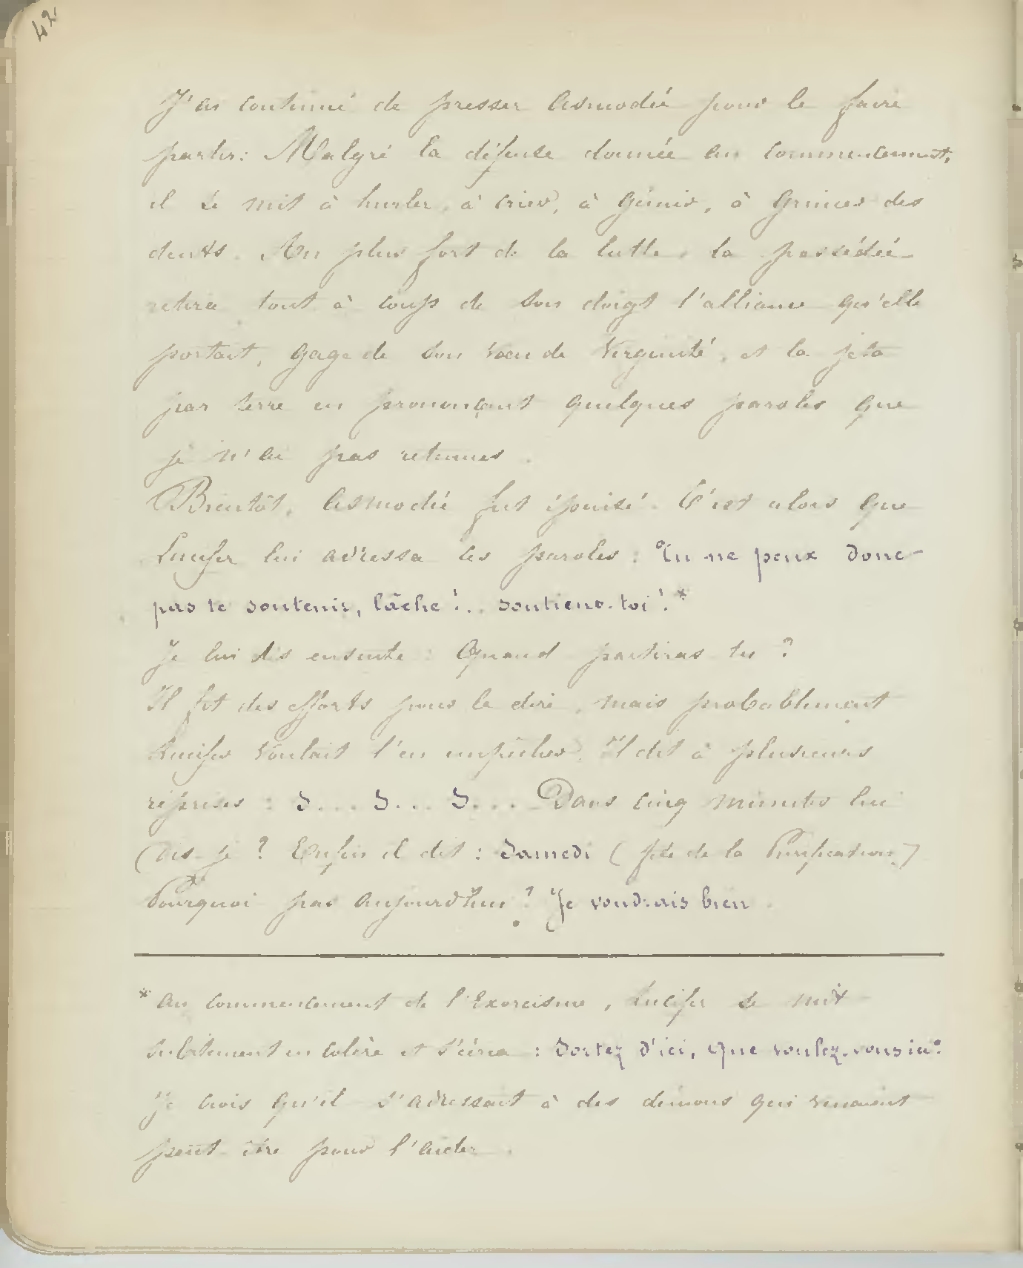 42
J'ai continué de presser Asmodée pour le faire
partir: Malgré la défense donnée au commencement,
il se mit à hurler, à crier, à gémir, à grincer des
dents. Au plus fort de la lutte, la possédée
retira tout à coup de son doigt l'alliance qu'elle
portait, gage de son vœu de virginité, et la jeta
par terre en prononçant quelques paroles que
je n'ai pas retenues.
Bientôt, Asmodée fut épuisé. C'est alors que
Lucifer lui adressa les paroles : Tu ne peux donc
pas te soutenir, lâche !.. soutiens-toi ! *
Je lui dis ensuite : Quand partiras tu ?
Il fit des efforts pour le dire, mais probablement
Lucifer voulait l'en empêcher. Il dit à plusieurs
reprises : S... S... S... Dans cinq minutes lui
dis-je ? Enfin il dit : Samedi (fête de la Purification)
Pourquoi pas aujourd'hui ? Je voudrais bien.
* Au commencement de l'Exorcisme, Lucifer se mit
subitement en colère et s'écria : Sortez d'ici, que voulez-vous ici?
Je crois qu'il s'adressait à des démons qui venaient
peut être pour l'aider.